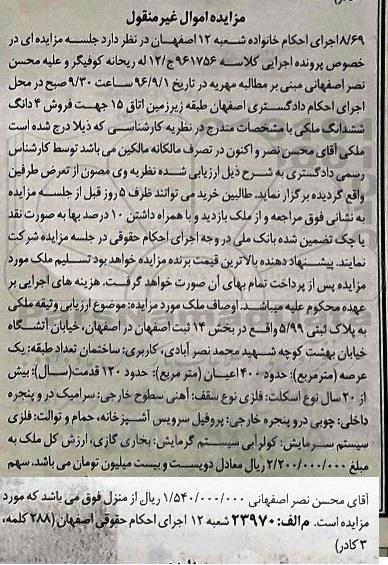 مزایده اموال غیر منقول
۸/۶۹ اجرای احکام خانواده شعبه ۱۲ اصفهان در نظر دارد جلسه مزایده ای در
خصوص پرونده اجرایی کلاسه ۹۶۱۷۵۶ج/۱۲ له ریحانه کوفیگر و علیه محسن
نصر اصفهانی مبنی بر مطالبه مهریه در تاریخ ۹۶/۹/۱ ساعت ۹/۳۰ صبح در محل
اجرای احکام دادگستری اصفهان طبقه زیرزمین اتاق ۱۵ جهت فروش ۴ دانگ
ششدانگ ملکی با مشخصات مندرج در نظریه کارشناسی که ذیلا درج شده است
ملکی آقای محسن نصر و اکنون در تصرف مالکانه مالکین می باشد توسط کارشناس
رسمی دادگستری به شرح ذیل ارزیابی شده نظریه وی مصون از تعرض طرفین
واقع گردیده برگزار نماید. طالبین خرید می توانند ظرف ۵ روز قبل از جلسه مزایده
به نشانی فوق مراجعه و از ملک بازدید و با همراه داشتن ۱۰ درصد بها به صورت نقد
یا چک تضمین شده بانک ملی در وجه اجرای احکام حقوقی در جلسه مزایده شرکت
نمایند. پیشنهاد دهنده بالاترین قیمت برنده مزایده خواهد بود تسلیم ملک مورد
مزایده پس از پرداخت تمام بهای آن صورت خواهد گرفت. هزینه های اجرایی بر
عهده محکوم علیه میباشد. اوصاف ملک مورد مزایده: موضوع ارزیابی وثیقه ملکی
به پلاک ثبتی ۵/۹۹ واقع در بخش ۱۴ ثبت اصفهان در اصفهان، خیابان آتشگاه
خیابان بهشت کوچه شهید محمد نصر آبادی، کاربری: ساختمان تعداد طبقه: یک
عرصه (مترمربع): حدود ۴۰۰ اعیان (متر مربع): حدود ۱۲۰ قدمت(سال): بیش
از ۲۰ سال نوع اسکلت: فلزی نوع سقف: آهنی سطوح خارجی: سرامیک در و پنجره
داخلی: چوبی در و پنجره خارجی: پروفیل سرویس آشپزخانه، حمام و توالت: فلزی
سیستم سرمایش: کولر آبی سیستم گرمایش: بخاری گازی، ارزش کل ملک به
مبلغ ۲/۲۰۰/۰۰۰/۰۰۰ ریال معادل دویست و بیست میلیون تومان می باشد. سهم
آقای محسن نصر اصفهانی ۱/۵۴۰/۰۰۰/۰۰۰ ریال از منزل فوق می باشد که مورد
مزایده است. م الف: ۲۳۹۷۰ شعبه ۱۲ اجرای احکام حقوقی اصفهان (۲۸۸ کلمه،
۳ کادر)